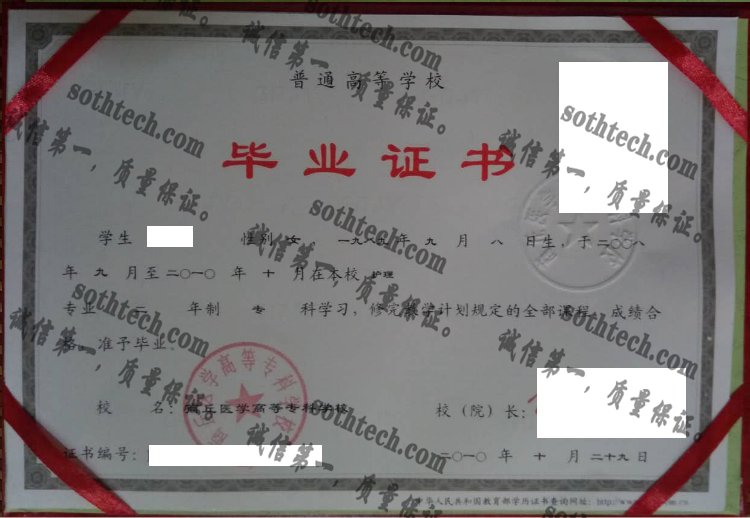 普通高等学校
毕业证书
学生 性别 女 一九八九 年 九 月 八 日生，于二〇〇八
年 九 月至二〇一〇 年 十 月在本校 护理
专业 三 年制 专 科学习，修完教学计划规定的全部课程，成绩合
格，准予毕业。
校 名：商丘医学高等专科学校
校（院）长：
证书编号：
二〇一〇 年 十 月 二十九日
中华人民共和国教育部学历证书查询网址：http://www.
商丘医学高等专科学校
sothtech.com
诚信第一，质量保证。
sothtech.com
诚信第一，质量保证。
sothtech.com
诚信第一，质量保证。
sothtech.com
诚信第一，质量保证。
sothtech.com
诚信第一，质量保证。
sothtech.com
诚信第一，质量保证。
sothtech.com
诚信第一，质量保证。